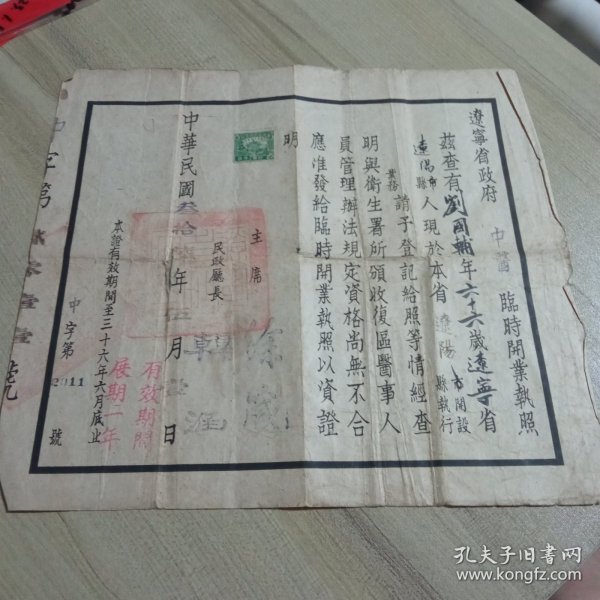 遼寧省政府 中醫 臨時開業執照
茲查有劉國輔年六十六歲遼寧省
遼陽市縣人現於本省遼陽市縣開設執行
業務請予登記給照等情經查
明與衛生署所頒收復區醫事人
員管理辦法規定資格尚無不合
應准發給臨時開業執照以資證
明
主席
民政廳長
中華民國叁拾年月日
本證有效期間至三十六年六月底止
有效期間
展期一年
中字第2011號
字第
孔夫子旧书网
www.kongfz.com